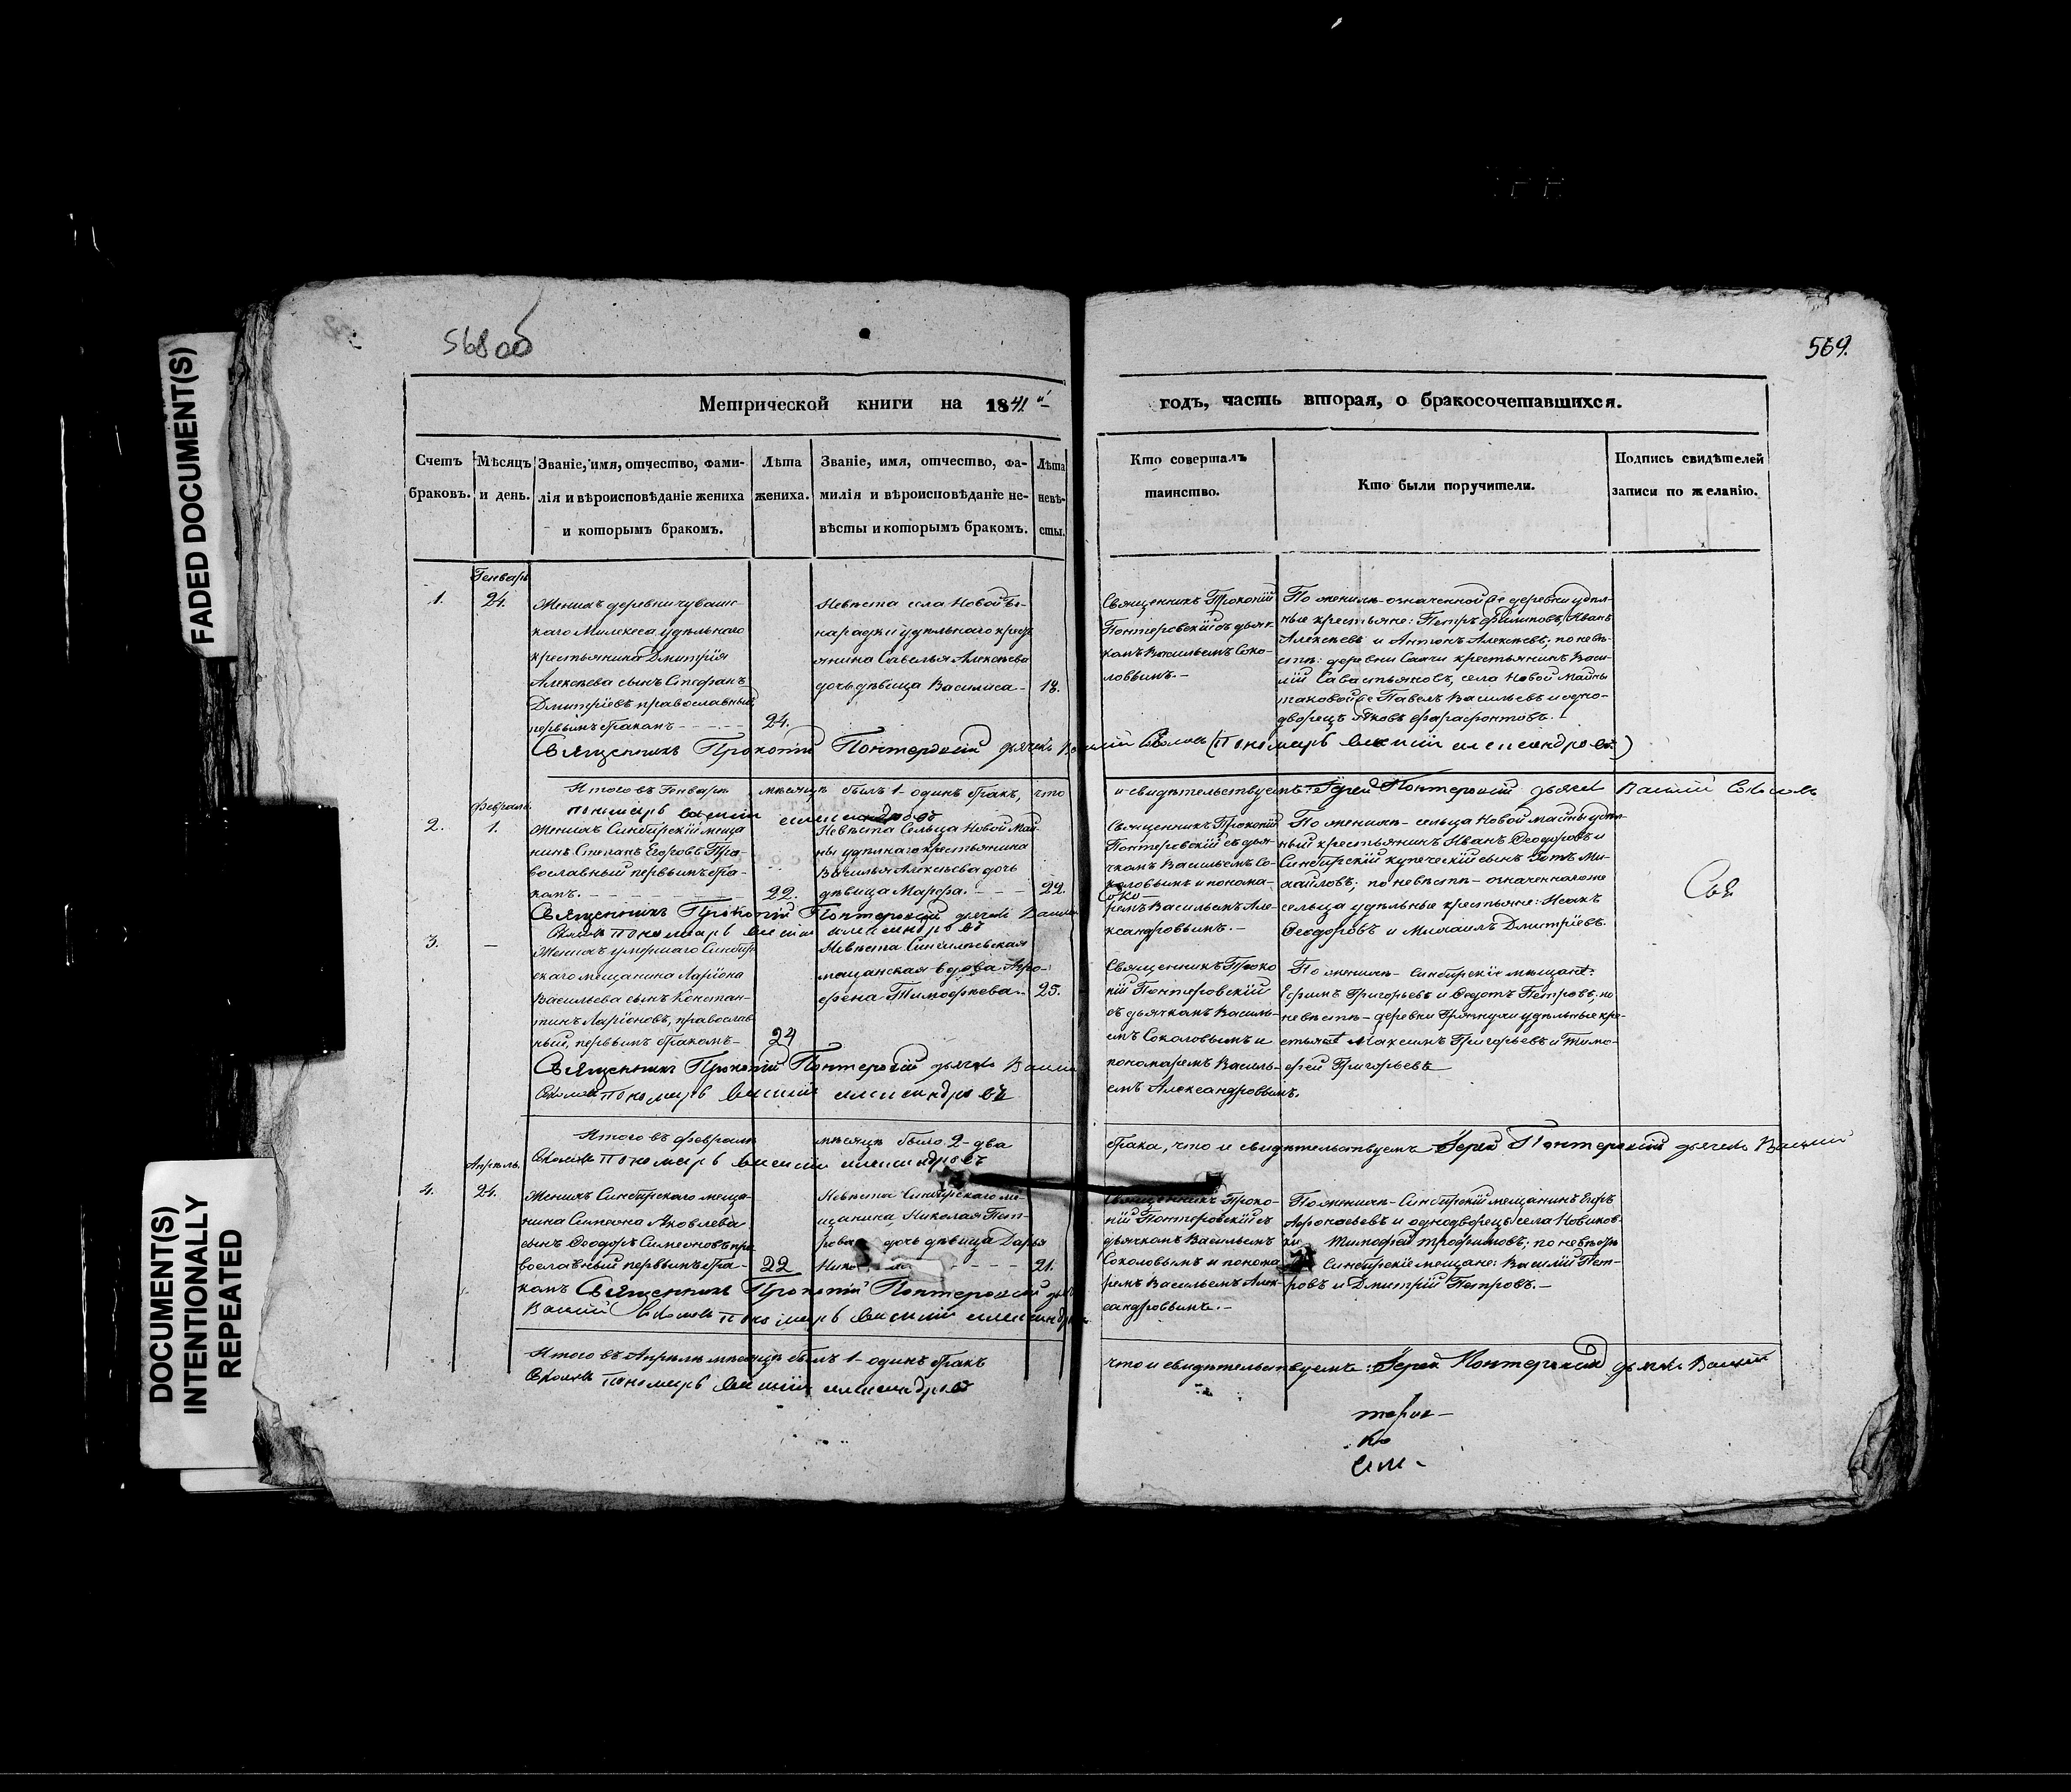 FADED DOCUMENT(S)
DOCUMENT(S)
INTENTIONALLY
REPEATED
568 об
569.
Метрической книги на 1841 й
годъ, часть вторая, о бракосочетавшихся.
Счетъ
браковъ.
Мѣсяцъ
и день.
Званіе, имя, отчество, фами-
лія и вѣроисповѣданіе жениха
и которымъ бракомъ.
Лѣта
жениха.
Званіе, имя, отчество, фа-
милія и вѣроисповѣданіе не-
вѣсты и которымъ бракомъ.
Лѣта
невѣ-
сты.
Кто совершалъ
таинство.
Кто были поручители.
Подпись свидѣтелей
записи по желанію.
Генварь
1.
24.
Женихъ деревни чуваш-
каго Мелекеса удѣльнаго
крестьянина Дмитрія
Алексѣева сынъ Стефанъ
Дмитріевъ православный,
первымъ бракомъ
24.
Невѣста села Новой
удѣльнаго крест
янина Савелья Алексѣева
дочь дѣвица Василиса
18.
Священникъ Прокопій
Понтеровскій съ дьяч-
комъ Васильемъ Соко-
ловымъ.
По женихѣ означенной же деревни удѣл-
ные крестьяне: Петръ Филиповъ, Иванъ
Алексѣевъ и Антонъ Алексѣевъ; по невѣ-
стѣ: деревни крестьянинъ Васи-
лій Савастьяновъ, села Новой Майны
таковой же Павелъ Васильевъ и одно-
дворецъ Яковъ Фарафонтовъ.
Священникъ Прокопій Понтеровскій дьячекъ Василій Соколовъ Пономарь Василій Александровъ
Итого въ Генварѣ мѣсяцѣ былъ 1 одинъ бракъ, что
и свидѣтельствуемъ: Іерей Понтеровскій дьячекъ Василій Соколовъ
пономарь Василій Александровъ
Февраль.
2.
1.
Женихъ Синбирскій меща
нинъ Степанъ Егоровъ Пра-
вославный первымъ бра-
комъ.
22.
Невѣста Сельца Новой Май-
ны удѣлнаго крестьянина
Василья Алексѣева дочь
дѣвица Марфа.
22.
Священникъ Прокопій
Понтеровскій съ дья-
чкомъ Васильемъ Со-
коловымъ и понома-
ремъ Васильемъ Але-
ксандровымъ.
По женихѣ сельца Новой Майны удѣл-
ный крестьянинъ Иванъ Ѳеодоровъ и
Синбирскій купеческій сынъ Ми-
хайловъ; по невѣстѣ означеннаго же
сельца удѣльные крестьяне: Исакъ
Ѳеодоровъ и Михаилъ Дмитріевъ.
Священникъ Прокопій Понтеровскій дьячекъ Василій
Соколовъ пономарь Василій Александровъ
3.
Женихъ умершаго Синбир
скаго мещанина Ларіона
Васильева сынъ Констан-
тинъ Ларіоновъ, православ
ный, первымъ бракомъ
24
Невѣста
мещанская вдова Агро-
фена Тимофѣева
25.
Священникъ Проко
пій Понтеровскій
съ дьячкомъ Василь-
емъ Соколовымъ и
пономаремъ Василь-
емъ Александровымъ.
По женихѣ Синбирскіе мещане:
Ефимъ Григорьевъ и Ѳедотъ Петровъ; по
невѣстѣ деревни удѣльные кре-
стьяне Максимъ Григорьевъ и Тимо-
фей Григорьевъ
Священникъ Прокопій Понтеровскій дьячекъ Василій
Соколовъ пономарь Василій Александровъ
Итого въ Февралѣ мѣсяцѣ было 2 два
брака, что и свидѣтельствуемъ Іерей Понтеровскій дьячекъ Василій
Соколовъ пономарь Василій Александровъ
Апрѣль.
4.
24.
Женихъ Синбирскаго меща-
нина Симеона Яковлева
сынъ Ѳеодоръ Симеоновъ пра
вославный первымъ бра-
комъ
22
Невѣста Синбирскаго ме-
щанина Николая Пет-
рова дочь дѣвица Дарья
21.
Священникъ Проко-
пій Понтеровскій съ
дьячкомъ Васильемъ
Соколовымъ и понома
ремъ Васильемъ Алек-
сандровымъ.
По женихѣ Синбирскій мещанинъ
Афонасьевъ и однодворецъ села
Тимофей Трофимовъ; по невѣстѣ
Синбирскіе мещане: Василій Пет-
ровъ и Дмитрій Петровъ.
Священникъ Прокопій Понтеровскій
Василій Соколовъ пономарь Василій Александровъ
Итого въ Апрѣлѣ мѣсяцѣ былъ 1 одинъ бракъ
что и свидѣтельствуемъ: Іерей Понтеровскій дьячекъ Василій
Соколовъ пономарь Василій Александровъ